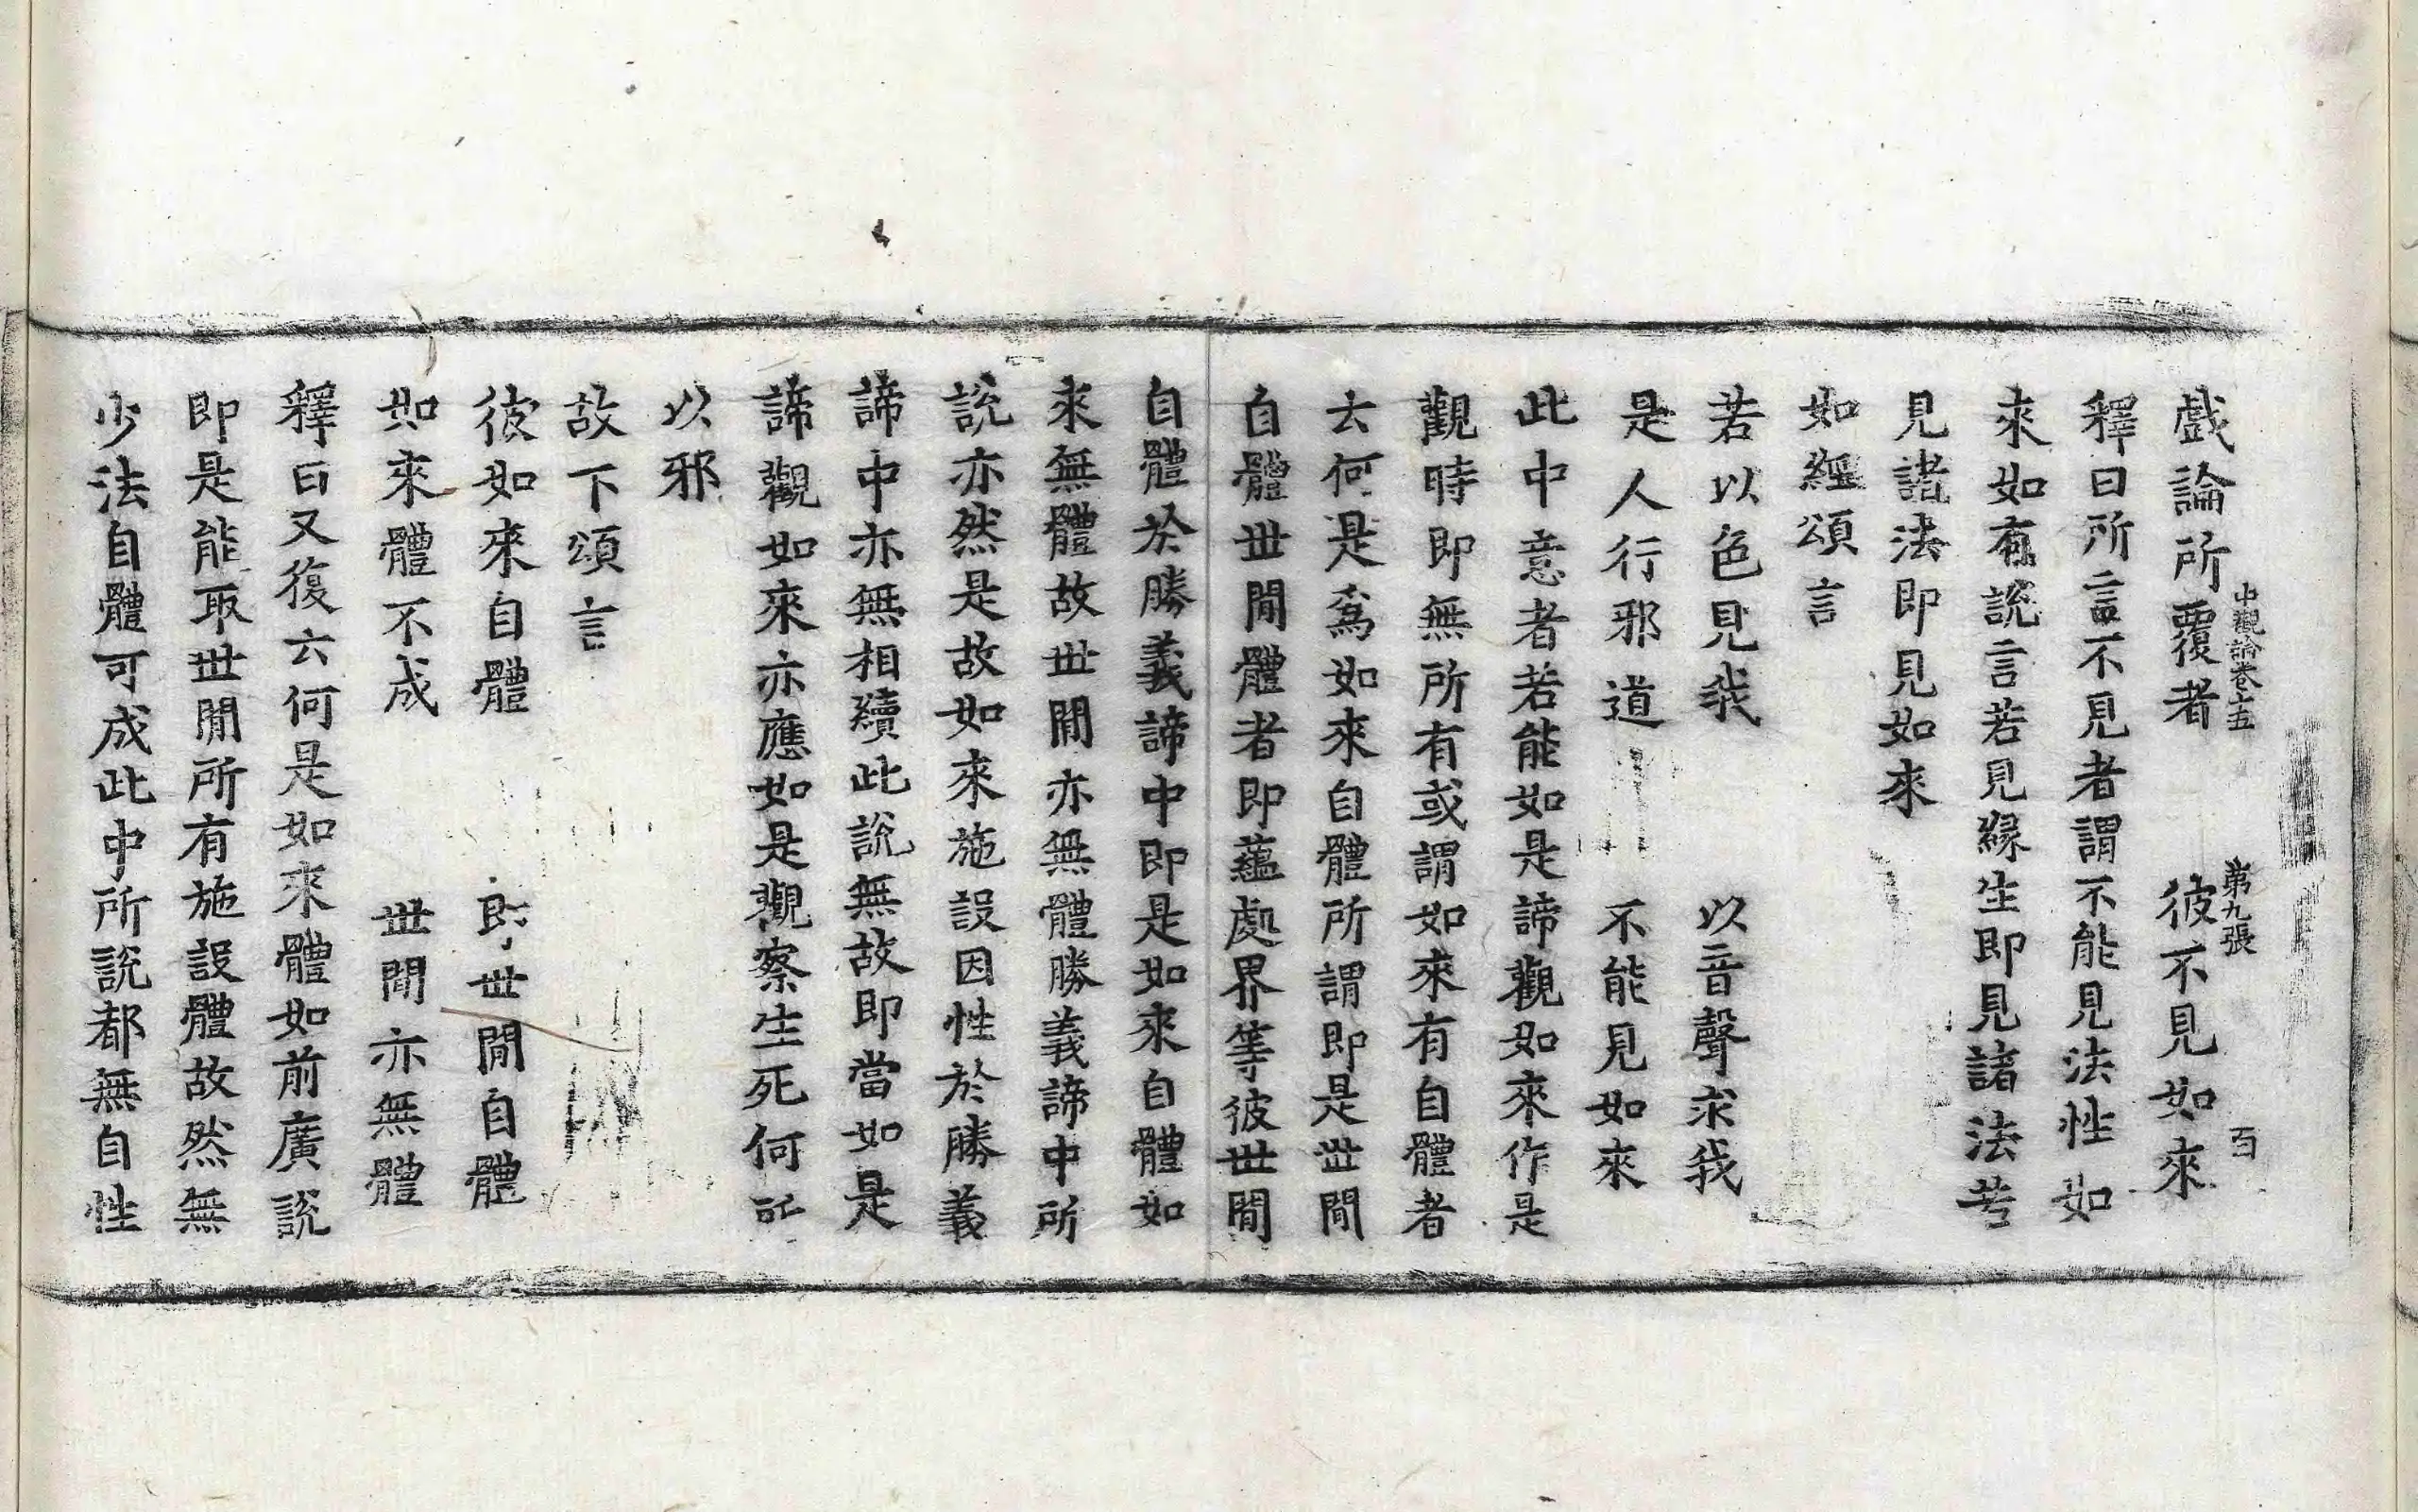 中觀論卷十五　第九張　百
戲論所覆者　彼不見如來
釋曰所言不見者謂不能見法性如
來如有說言若見緣生即見諸法若
見諸法即見如來
如經頌言
若以色見我　以音聲求我
是人行邪道　不能見如來
此中意者若能如是諦觀如來作是
觀時即無所有或謂如來有自體者
云何是爲如來自體所謂即是世間
自體世間體者即蘊處界等彼世間
自體於勝義諦中即是如來自體如
來無體故世間亦無體勝義諦中所
說亦然是故如來施設因性於勝義
諦中亦無相續此說無故即當如是
諦觀如來亦應如是觀察生死何所
以邪
故下頌言
彼如來自體　即世間自體
如來體不成　世間亦無體
釋曰又復云何是如來體如前廣說
即是能取世間所有施設體故然無
少法自體可成此中所說都無自性